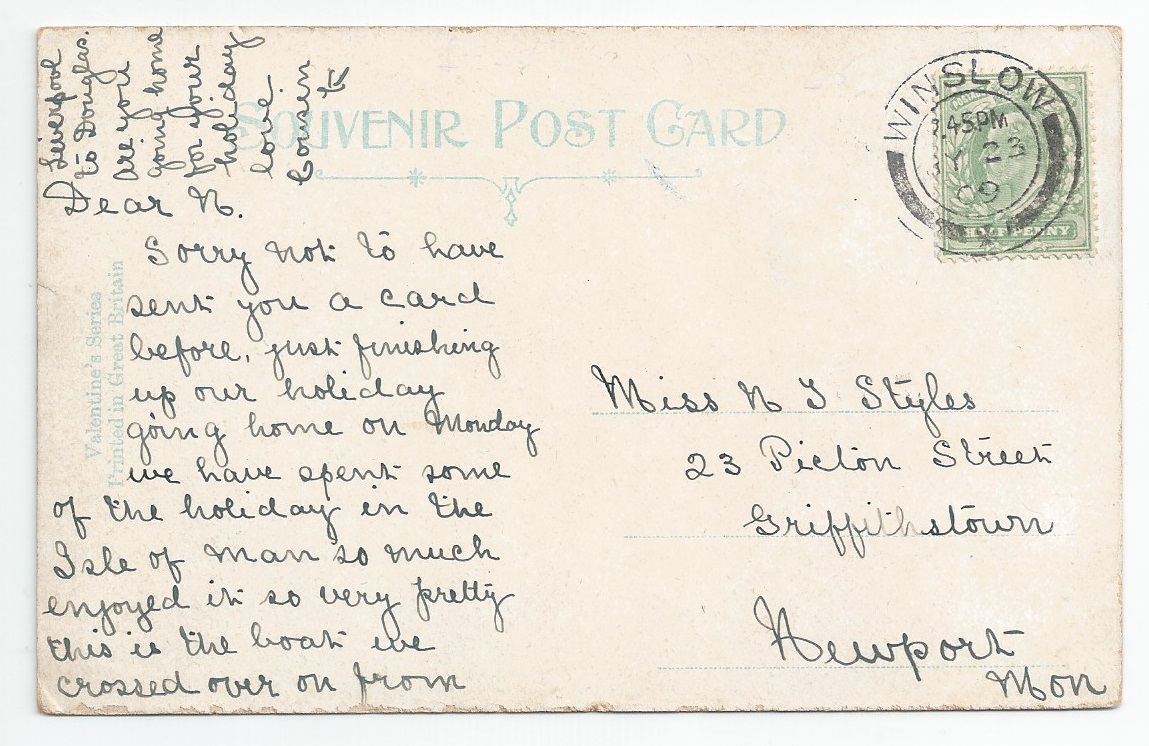 SOUVENIR POST CARD
Valentine's Series
Printed in Great Britain
WINSLOW
.45PM
Y 23
09
HALFPENNY
Dear N.
Sorry not to have
sent you a card
before, just finishing
up our holiday
going home on Monday
we have spent some
of the holiday in the
Isle of Man so much
enjoyed it so very pretty
this is the boat we
crossed over on from
Liverpool
to Douglas.
are you
going home
for your
holiday
love.
Cousin
Miss N J Styles
23 Picton Street
Griffithstown
Newport
Mon